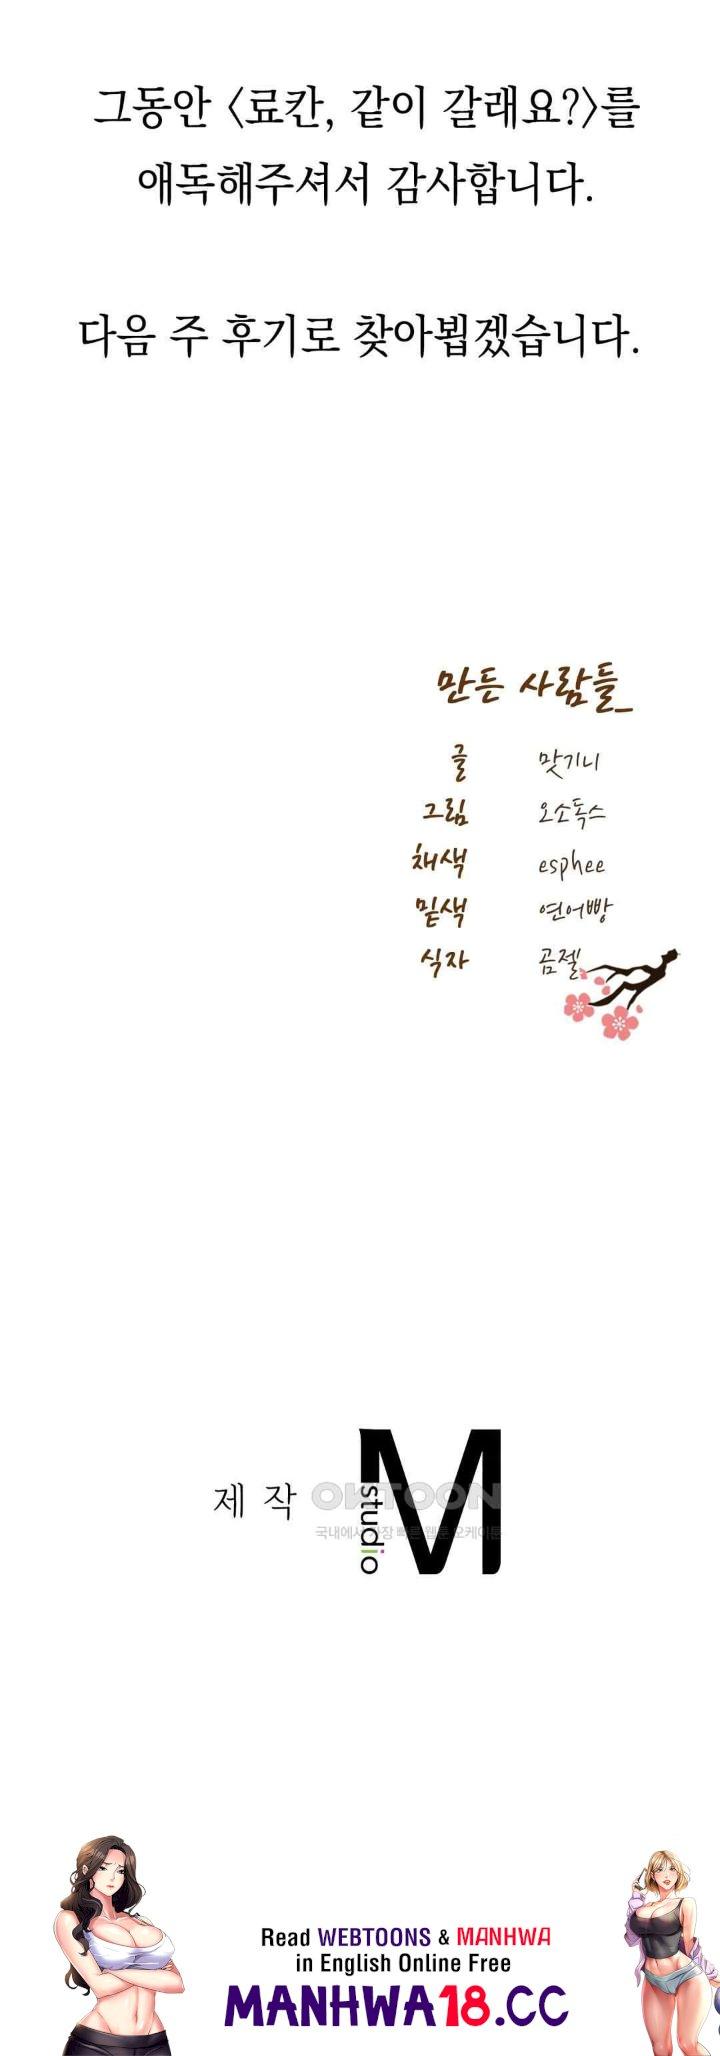 그동안 〈료칸, 같이 갈래요?〉를
애독해주셔서 감사합니다.
다음 주 후기로 찾아뵙겠습니다.
만든 사람들_
글 맛기니
그림 오소독스
채색 esphee
밑색 연어빵
식자 곰젤
제작
OKTOON
국내에서 가장 빠른 웹툰 오케이툰
M
studio
Read WEBTOONS & MANHWA
in English Online Free
MANHWA18.CC